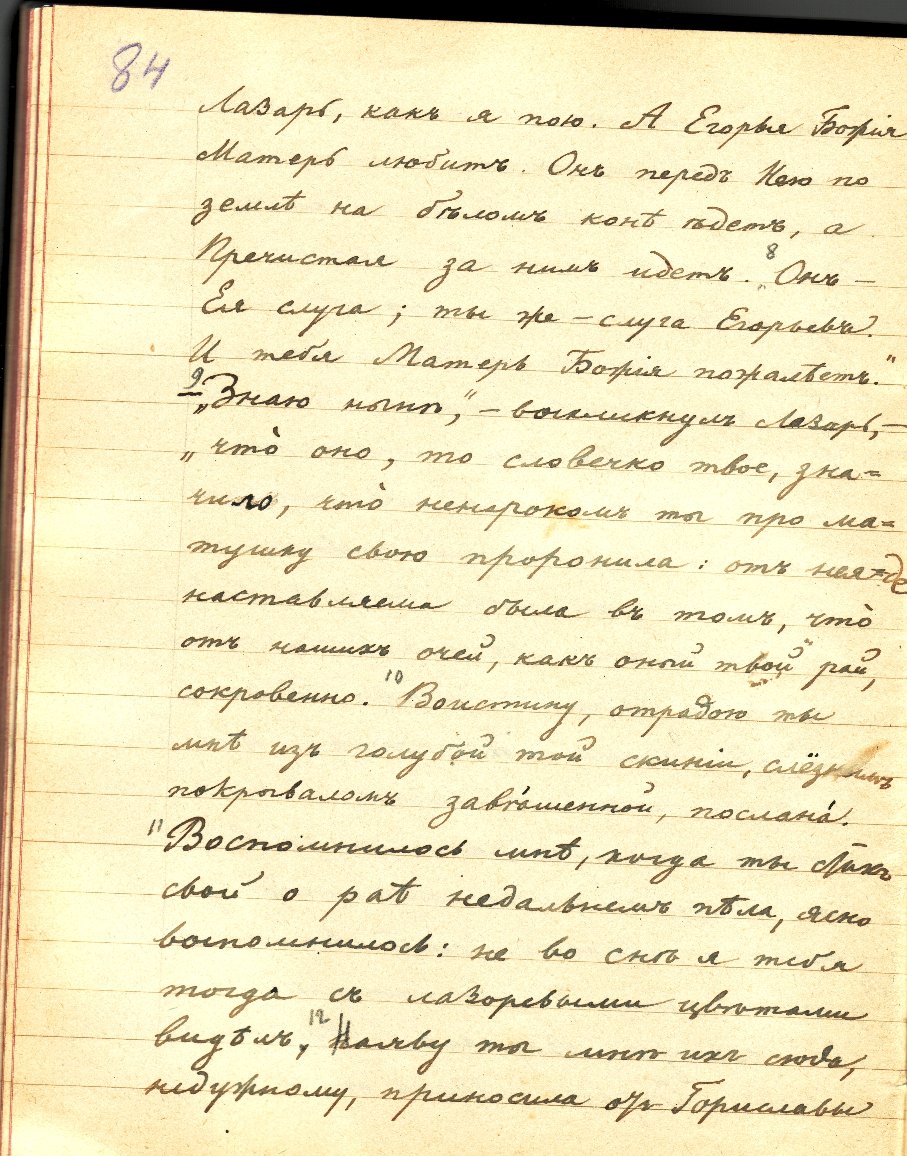 84
Лазарь, какъ я пою. А Егорья Божія
Матерь любитъ. Онъ передъ Нею по
землѣ на бѣломъ конѣ ѣдетъ, а
Пречистая за нимъ идетъ. 8 Онъ —
Ея слуга; ты же — слуга Егорьевъ.
И тебя Матерь Божія пожалѣетъ."
9 „Знаю нынѣ," — воскликнулъ Лазарь, —
„что̀ оно, то словечко твое, зна=
чило, что̀ ненарокомъ ты про ма=
тушку свою проронила: отъ нея=де
наставляема была въ томъ, что̀
отъ нашихъ очей, какъ оный твой рай,
сокровенно. 10 Воистину, отрадою ты
мнѣ изъ голубой той скиніи, слёзнымъ
покрываломъ завѣшенной, послана́.
11 Воспомнилось мнѣ, когда ты стихъ
свой о раѣ недальнемъ пѣла, ясно
воспомнилось: не во снѣ я тебя
тогда съ лазоревыми цвѣтами
видѣлъ, 12 Наяву ты мнѣ ихъ сюда,
недужному, приносила отъ Гориславы